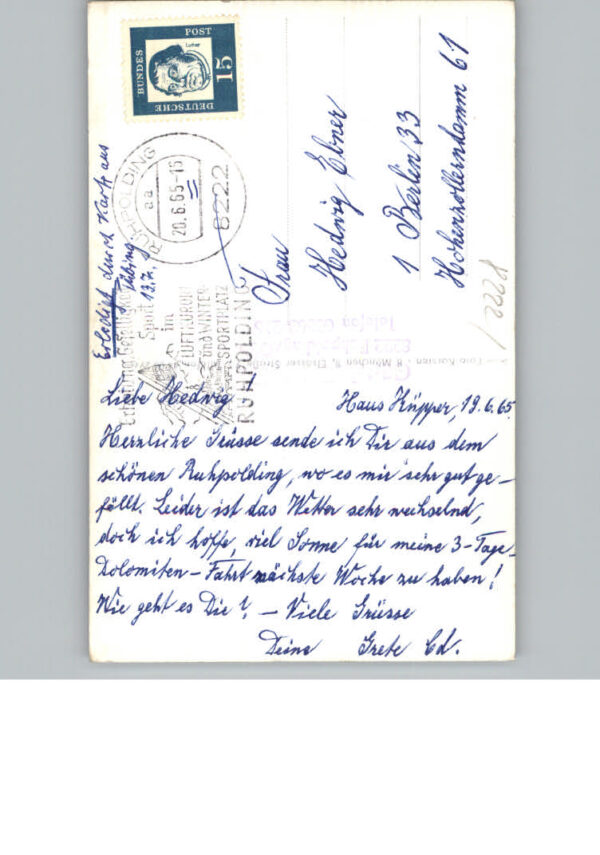 DEUTSCHE
BUNDES
POST
15
Luther
RUHPOLDING
aa
20.6.65-16
8222
Erholung, Geselligkeit
Sport
im
LUFTKURORT
und WINTER-
SPORTPLATZ
RUHPOLDING
Erledigt durch Karte aus
13.7.
Frau
Hedwig Ebner
1 Berlin 33
Hohenzollerndamm 61
8222
8 München 9, Elsässer
Liebe Hedwig!
Haus Küpper, 19.6.65.
Herzliche Grüsse sende ich Dir aus dem
schönen Ruhpolding, wo es mir sehr gut ge-
fällt. Leider ist das Wetter sehr wechselnd,
doch ich hoffe, viel Sonne für meine 3-Tage-
Dolomiten-Fahrt nächste Woche zu haben!
Wie geht es Dir? - Viele Grüsse
Deine Grete Ed.